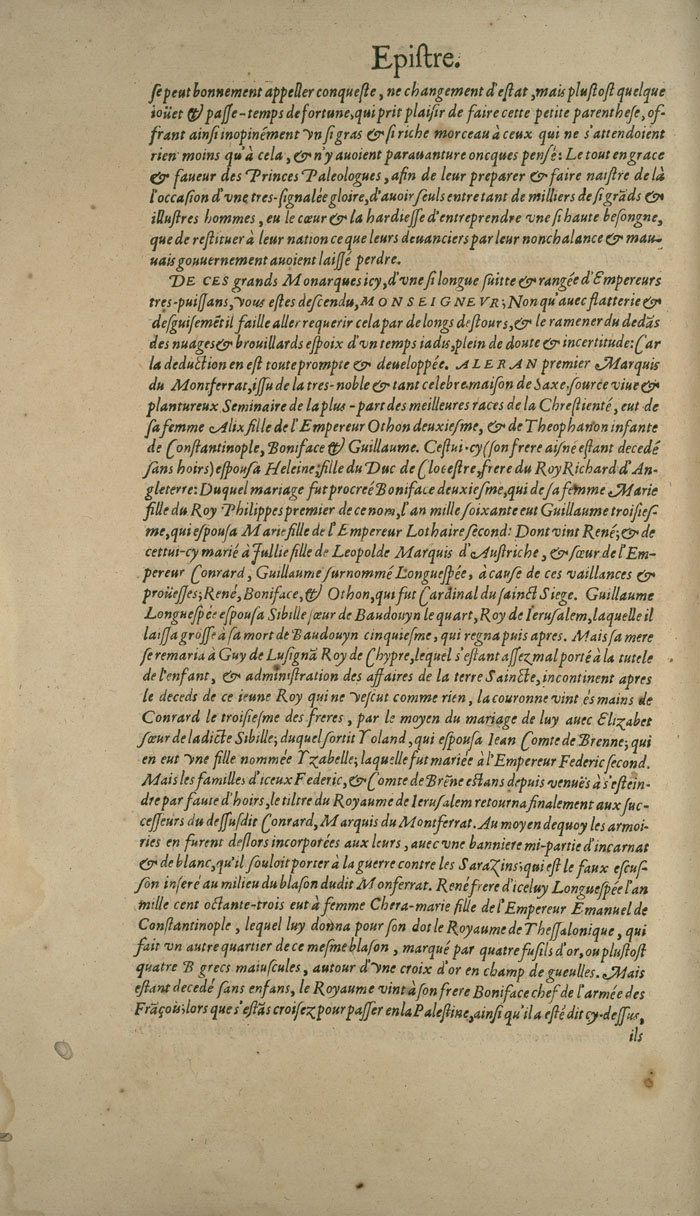 Epiſtre.
ſe peut bonnement appeller conqueſte, ne changement d'eſtat, mais pluſtoſt quelque
ioüet & paſſe-temps de fortune, qui prit plaiſir de faire cette petite parentheſe, of-
frant ainſi inopinément vn ſi gras & ſi riche morceau à ceux qui ne s'attendoient
rien moins qu'à cela, & n'y auoient parauanture oncques penſé: Le tout en grace
& faueur des Princes Paleologues, afin de leur preparer & faire naiſtre de là
l'occaſion d'vne tres-ſignalée gloire, d'auoir ſeuls entre tant de milliers de ſi grãds &
illuſtres hommes, eu le cœur & la hardieſſe d'entreprendre vne ſi haute beſongne,
que de reſtituer à leur nation ce que leurs deuanciers par leur nonchalance & mau-
uais gouuernement auoient laiſſé perdre.
DE CES grands Monarques icy, d'vne ſi longue ſuitte & rangée d'Empereurs
tres-puiſſans, vous eſtes deſcendu, MONSEIGNEVR; Non qu'auec flatterie &
deſguiſemẽt il faille aller requerir cela par de longs deſtours, & le ramener du dedãs
des nuages & brouillards eſpoix d'vn temps iadis, plein de doute & incertitude: Car
la deduction en eſt toute prompte & deueloppée. ALERAN premier Marquis
du Montferrat, iſſu de la tres-noble & tant celebre maiſon de Saxe, ſource viue &
plantureux Seminaire de la plus-part des meilleures races de la Chreſtienté, eut de
ſa femme Alix fille de l'Empereur Othon deuxieſme, & de Theophanon infante
de Conſtantinople, Boniface & Guillaume. Ceſtui-cy (ſon frere aiſné eſtant decedé
ſans hoirs) eſpouſa Heleine, fille du Duc de Cloceſtre, frere du Roy Richard d'An-
gleterre: Duquel mariage fut procreé Boniface deuxieſme, qui de ſa femme Marie
fille du Roy Philippes premier de ce nom, l'an mille ſoixante eut Guillaume troiſieſ-
me, qui eſpouſa Marie fille de l'Empereur Lothaire ſecond: Dont vint René; & de
cettui-cy marié à Jullie fille de Leopolde Marquis d'Auſtriche, & ſœur de l'Em-
pereur Conrard, Guillaume ſurnommé Longueſpée, à cauſe de ces vaillances &
proüeſſes; René, Boniface, & Othon, qui fut Cardinal du ſainct Siege. Guillaume
Longueſpée eſpouſa Sibille ſœur de Baudouyn le quart, Roy de Ieruſalem, laquelle il
laiſſa groſſe à ſa mort de Baudouyn cinquieſme, qui regna puis apres. Mais ſa mere
ſe remaria à Guy de Luſignã Roy de Chypre, lequel s'eſtant aſſez mal porté à la tutele
de l'enfant, & adminiſtration des affaires de la terre Saincte, incontinent apres
le deceds de ce ieune Roy qui ne veſcut comme rien, la couronne vint és mains de
Conrard le troiſieſme des freres, par le moyen du mariage de luy auec Elizabet
ſœur de ladicte Sibille; duquel ſortit Yoland, qui eſpouſa Iean Comte de Brenne; qui
en eut vne fille nommée Yzabelle; laquelle fut mariée à l'Empereur Federic ſecond.
Mais les familles d'iceux Federic, & Comte de Brẽne eſtans depuis venuës à s'eſtein-
dre par faute d'hoirs, le tiltre du Royaume de Ieruſalem retourna finalement aux ſuc-
ceſſeurs du deſſuſdit Conrard, Marquis du Montferrat. Au moyen dequoy les armoi-
ries en furent deſlors incorporées aux leurs, auec vne banniere mi-partie d'incarnat
& de blanc, qu'il ſouloit porter à la guerre contre les Sarazins; qui eſt le faux eſcuſ-
ſon inſeré au milieu du blaſon dudit Monferrat. René frere d'iceluy Longueſpée l'an
mille cent octante-trois eut à femme Chera-marie fille de l'Empereur Emanuel de
Conſtantinople, lequel luy donna pour ſon dot le Royaume de Theſſalonique, qui
fait vn autre quartier de ce meſme blaſon, marqué par quatre fuſils d'or, ou pluſtoſt
quatre B grecs maiuſcules, autour d'vne croix d'or en champ de gueulles. Mais
eſtant decedé ſans enfans, le Royaume vint à ſon frere Boniface chef de l'armée des
Frãçois, lors que s'eſtãs croiſez pour paſſer en la Paleſtine, ainſi qu'il a eſté dit cy-deſſus,
ils